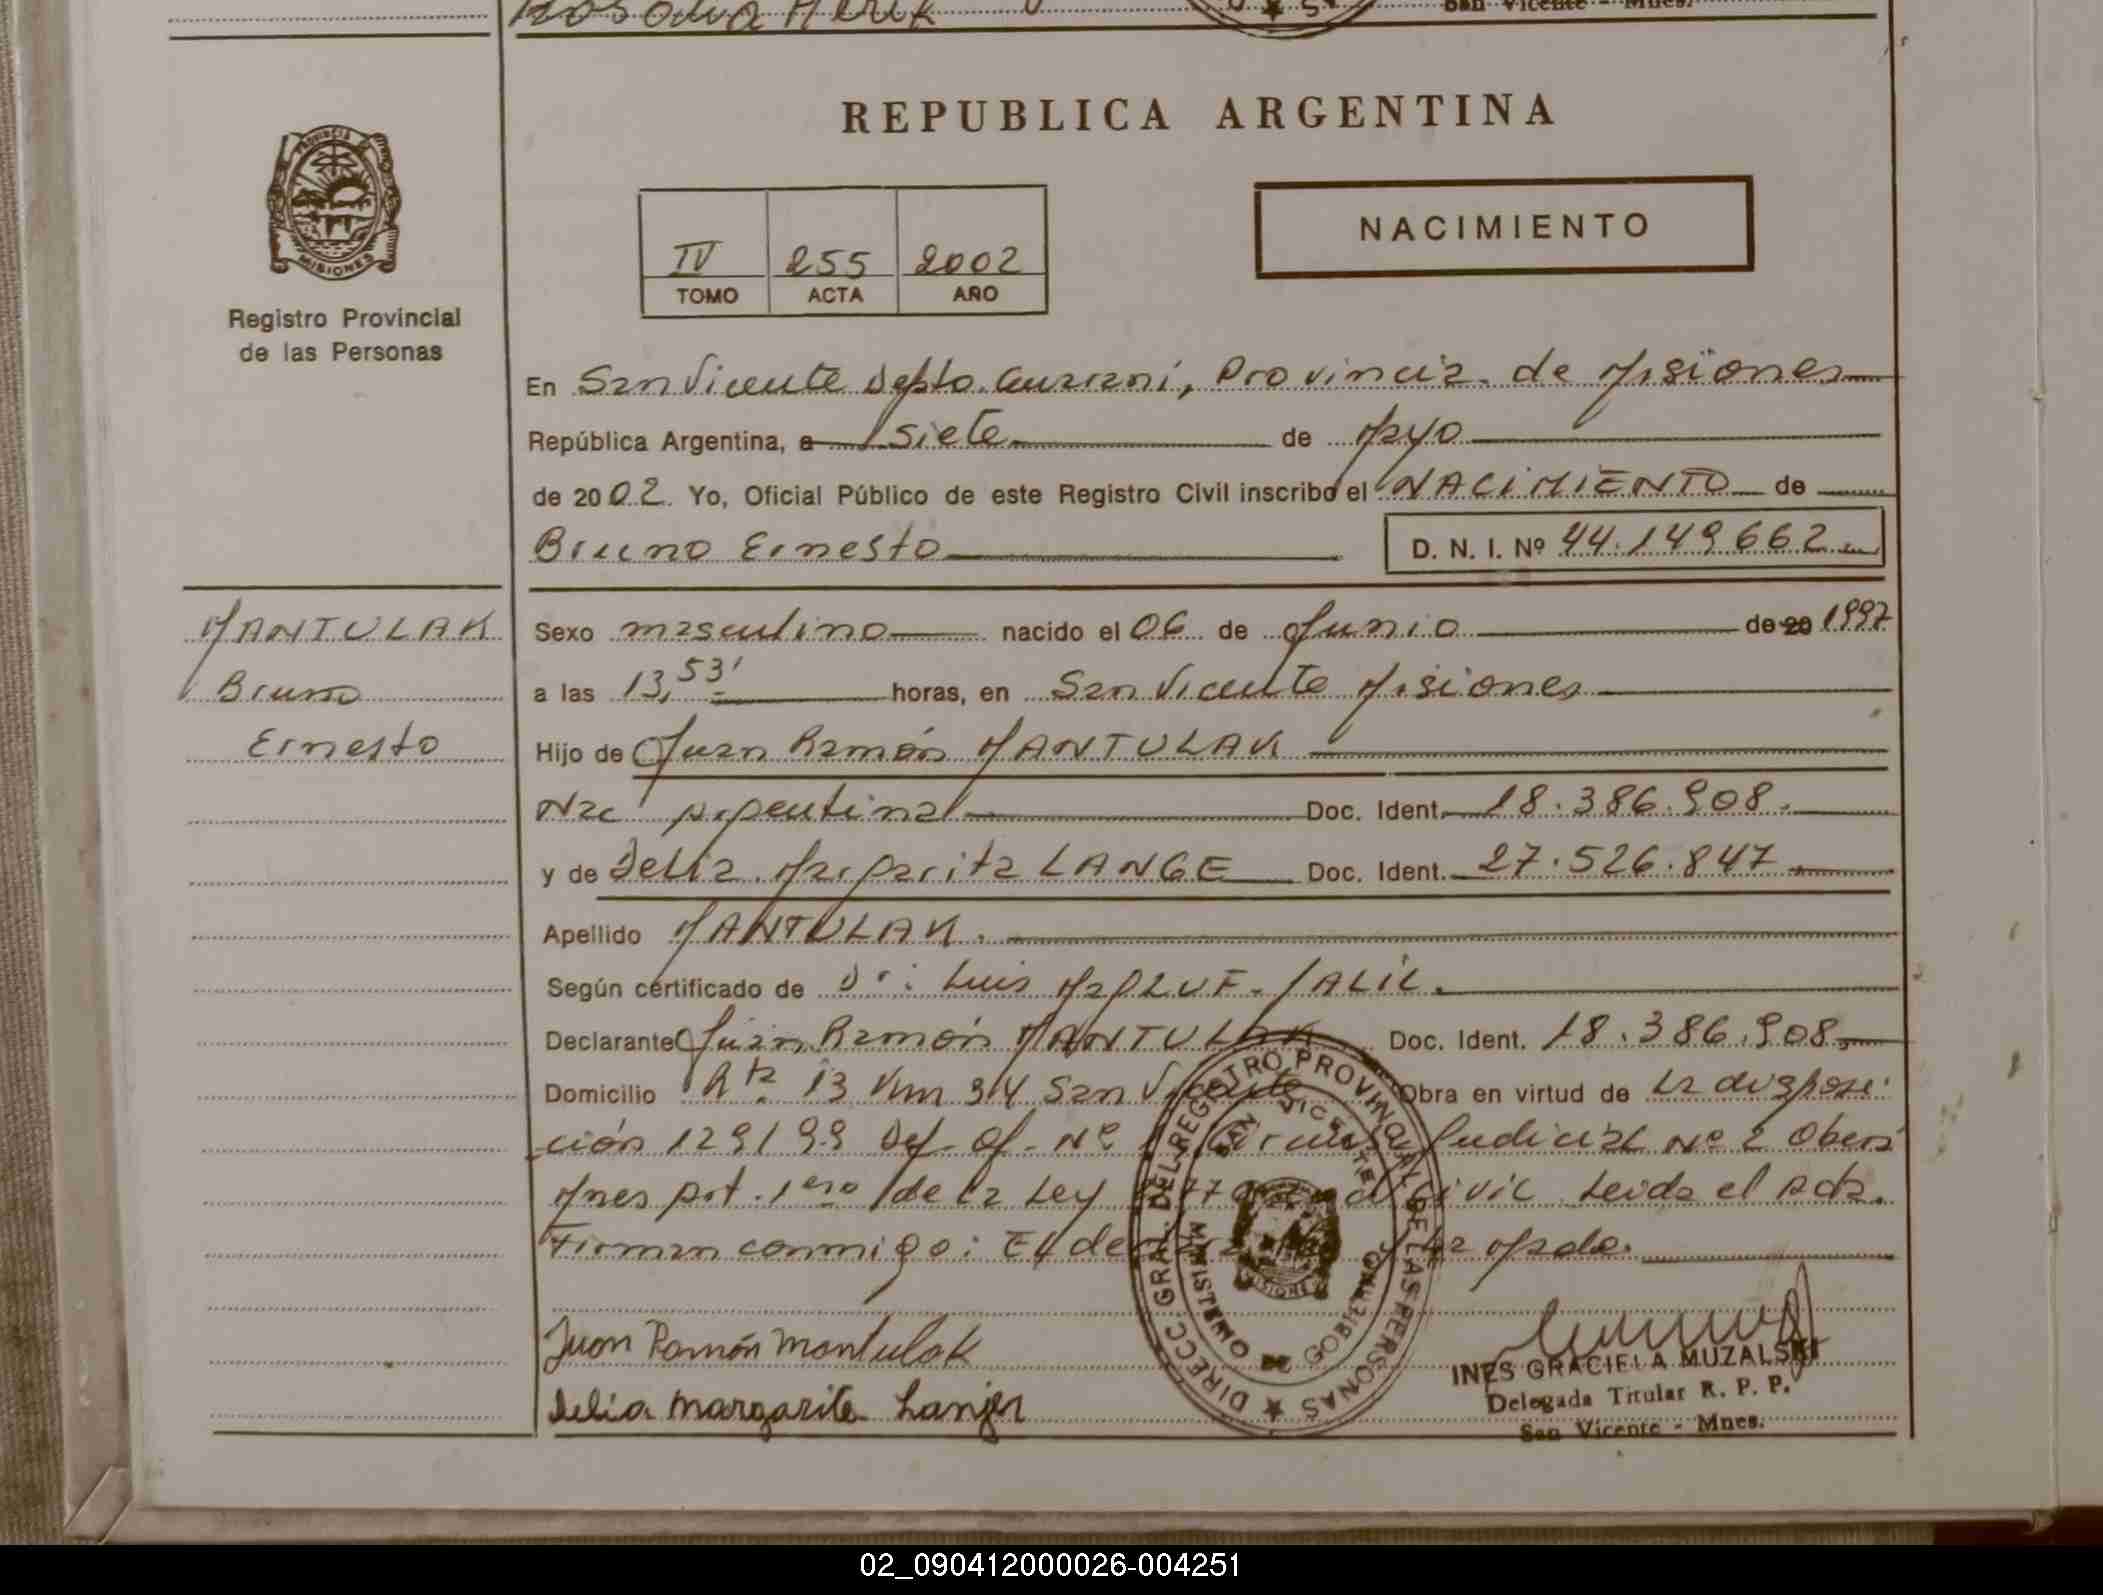 San Vicente - Mnes.
REPUBLICA ARGENTINA
PROVINCIA DE
MISIONES
Registro Provincial
de las Personas
IV 255 2002
TOMO ACTA AÑO
NACIMIENTO
En San Vicente Depto. Guaraní, Provincia de Misiones
República Argentina, a siete de Mayo
de 2002. Yo, Oficial Público de este Registro Civil inscribo el NACIMIENTO de
Bruno Ernesto D. N. I. Nº 44.149.662
MANTULAK
Bruno
Ernesto
Sexo masculino nacido el 06 de Junio de 20 1997
a las 13,53' horas, en San Vicente Misiones
Hijo de Juan Ramón MANTULAK
Nac Argentina Doc. Ident. 18.386.908.
y de Delia Margarita LANGE Doc. Ident. 27.526.847
Apellido MANTULAK.
Según certificado de Dr: Luis
Declarante Juan Ramón MANTULAK Doc. Ident. 18.386.908
Domicilio Rta. 13 Km 34 San Vicente Obra en virtud de la disposi-
ción 129/99 Def. Of. Nº Circuns. Judicial Nº 2 Oberá
Mnes Art. 1ero de la Ley Civil. Leída el Acta.
Firman conmigo: El
Juan Ramón Mantulak
Delia Margarita
DIREC. GRAL. DEL REGISTRO PROVINCIAL DE LAS PERSONAS
SAN VICENTE
MINISTERIO DE GOBIERNO
INES GRACIELA MUZALSKI
Delegada Titular R. P. P.
San Vicente - Mnes.
02_090412000026-004251